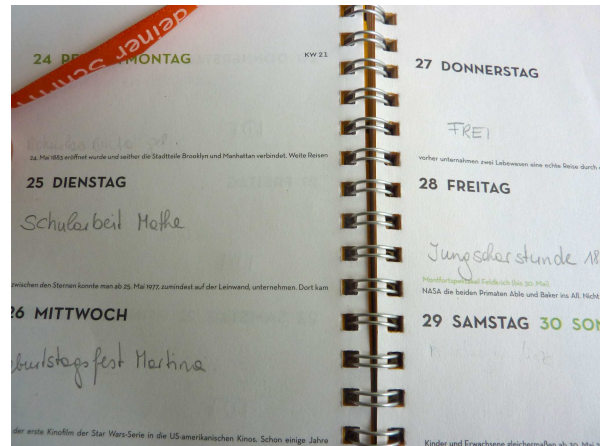 deiner Schri
24 MONTAG
KW 21
24. Mai 1883 eröffnet wurde und seither die Stadtteile Brooklyn und Manhattan verbindet. Weite Reisen
25 DIENSTAG
Schularbeit Mathe
zwischen den Sternen konnte man ab 25. Mai 1977, zumindest auf der Leinwand, unternehmen. Dort kam
26 MITTWOCH
eburtstagsfest Martina
der erste Kinofilm der Star Wars-Serie in die US-amerikanischen Kinos. Schon einige Jahre
27 DONNERSTAG
FREI
vorher unternahmen zwei Lebewesen eine echte Reise durch
28 FREITAG
Jungscharstunde 18
Montfortspektakel Feldkirch (bis 30. Mai)
NASA die beiden Primaten Able und Baker ins All. Nicht
29 SAMSTAG 30 SON
Kinder und Erwachsene gleichermaßen ab 30. Mai